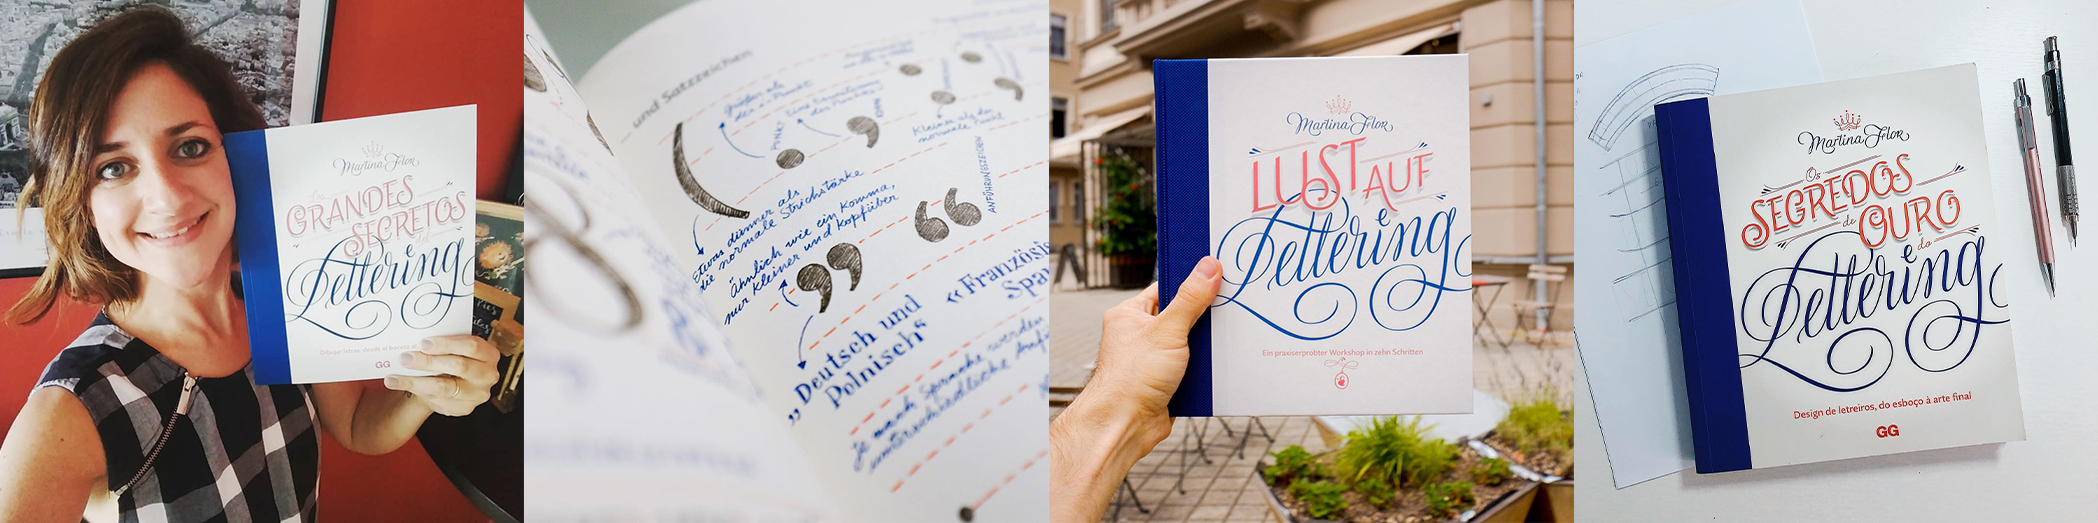 Martina Flor
Los
GRANDES
SECRETOS
del
Lettering
Dibujar letras: desde el boceto al
GG
... und Satzzeichen
größer als
der i-Punkt
PUNKT
Kleiner als der
normale Punkt
Etwas dünner als
die normale Strichstärke
Ähnlich wie ein Komma,
nur kleiner und kopfüber
ANFÜHRUNGSZEICHEN
„Deutsch und
Polnisch“
«Französi
Spa
je nach Sprache werden
unterschiedliche Anfü
Martina Flor
LUST AUF
Lettering
Ein praxiserprobter Workshop in zehn Schritten
Martina Flor
Os
SEGREDOS
de
OURO
do
Lettering
Design de letreiros, do esboço à arte final
GG